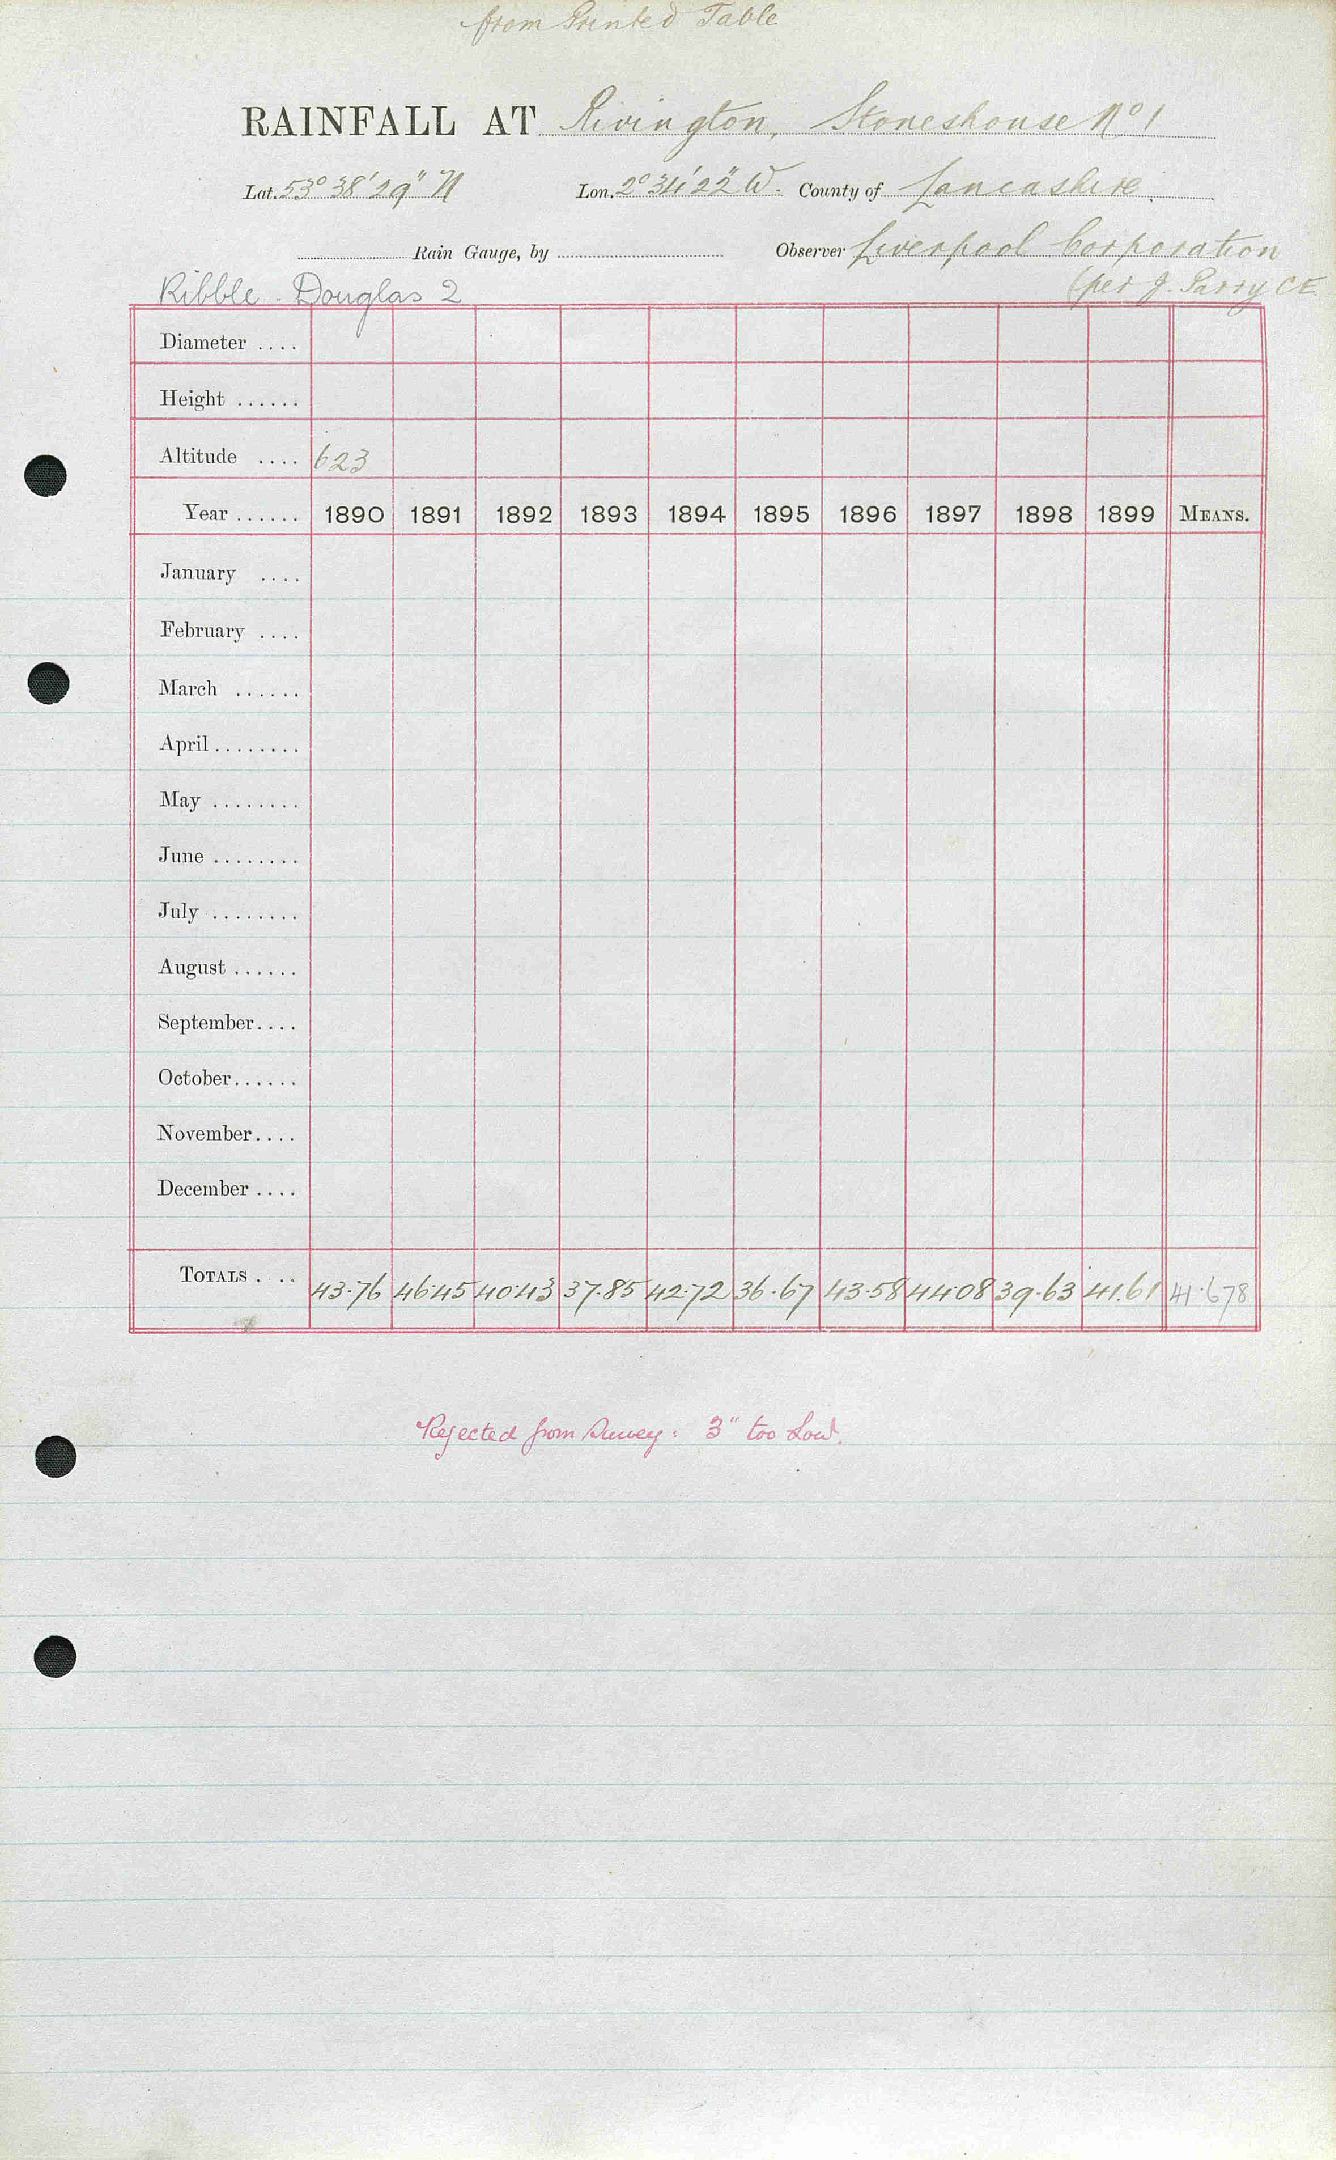 from Printed Table
RAINFALL AT Rivington, Stoneshouse No 1
Lat. 53° 38' 29" N Lon. 2° 34' 22" W. County of Lancashire.
Rain Gauge, by Observer Liverpool Corporation
Ribble - Douglas 2 (per J. Parry CE
Diameter ....
Height ......
Altitude .... 623
Year ...... 1890 1891 1892 1893 1894 1895 1896 1897 1898 1899 MEANS.
January ....
February ....
March ......
April........
May ........
June ........
July ........
August ......
September....
October......
November....
December ....
TOTALS . .. 43.76 46.45 40.43 37.85 42.72 36.67 43.58 44.08 39.63 41.61 41.678
Rejected from Survey: 3" too Low.